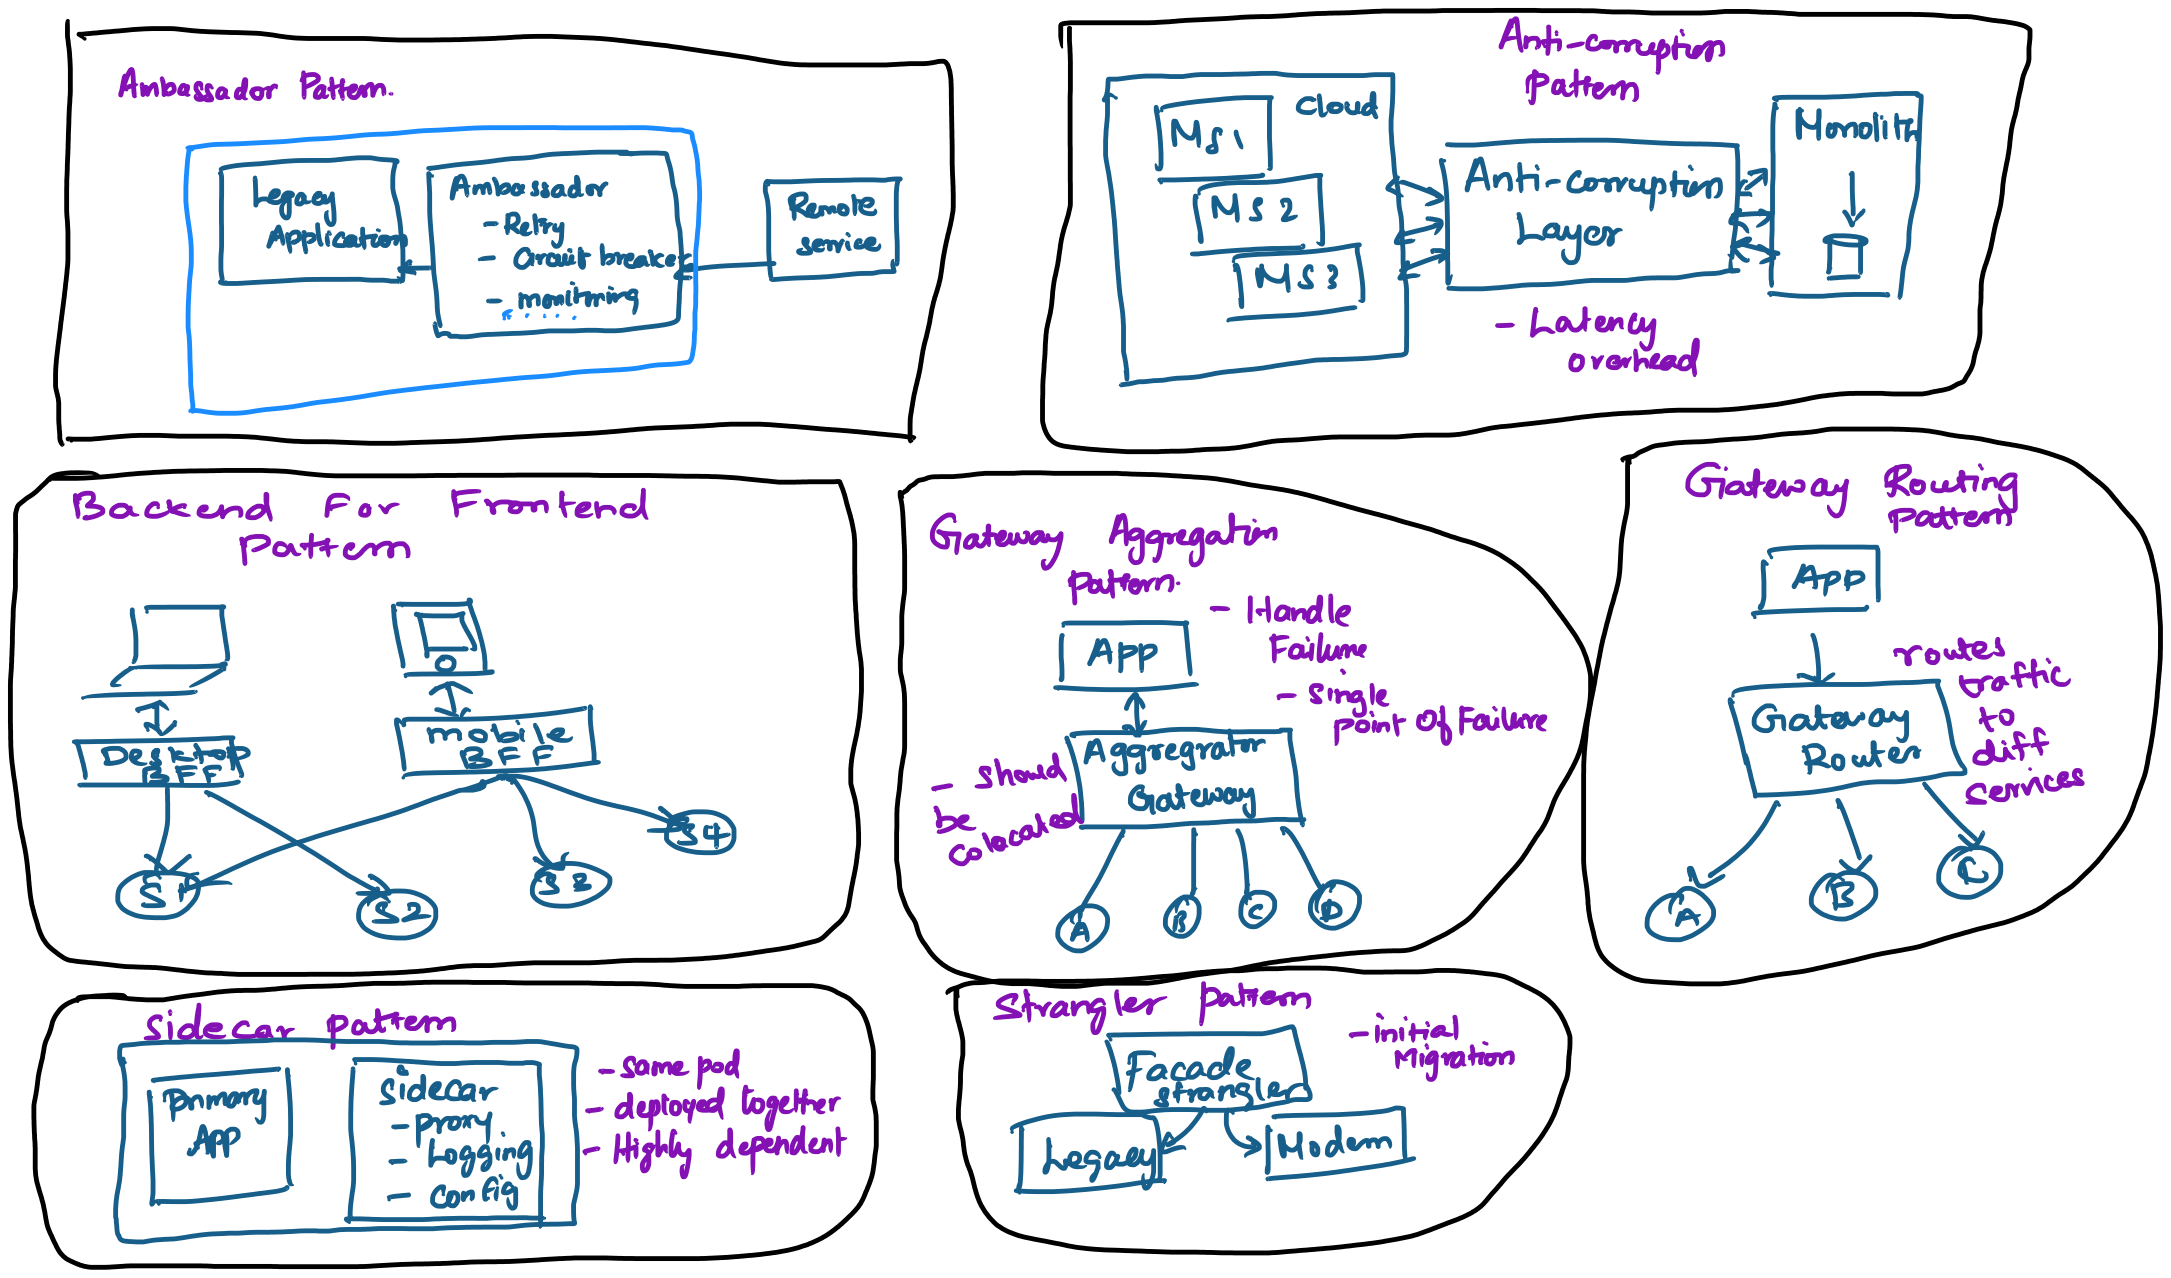 Ambassador Pattern.
Legacy
Application
Ambassador
- Retry
- Circuit breaker
- monitoring
.....
Remote
service
Anti-corruption
Pattern
Cloud
MS1
MS2
MS3
Anti-corruption
Layer
Monolith
- Latency
overhead
Backend For Frontend
Pattern
Desktop
BFF
mobile
BFF
S1
S2
S3
S4
Gateway Aggregation
Pattern.
- Handle
Failure
- Single
Point Of Failure
App
Aggregrator
Gateway
- should
be
colocated
A
B
C
D
Gateway Routing
Pattern
App
Gateway
Router
routes
traffic
to
diff
services
A
B
C
Sidecar Pattern
Primary
App
Sidecar
- Proxy
- Logging
- config
- same pod
- deployed together
- Highly dependent
Strangler Pattern
Facade
strangler
Legacy
Modern
- initial
Migration